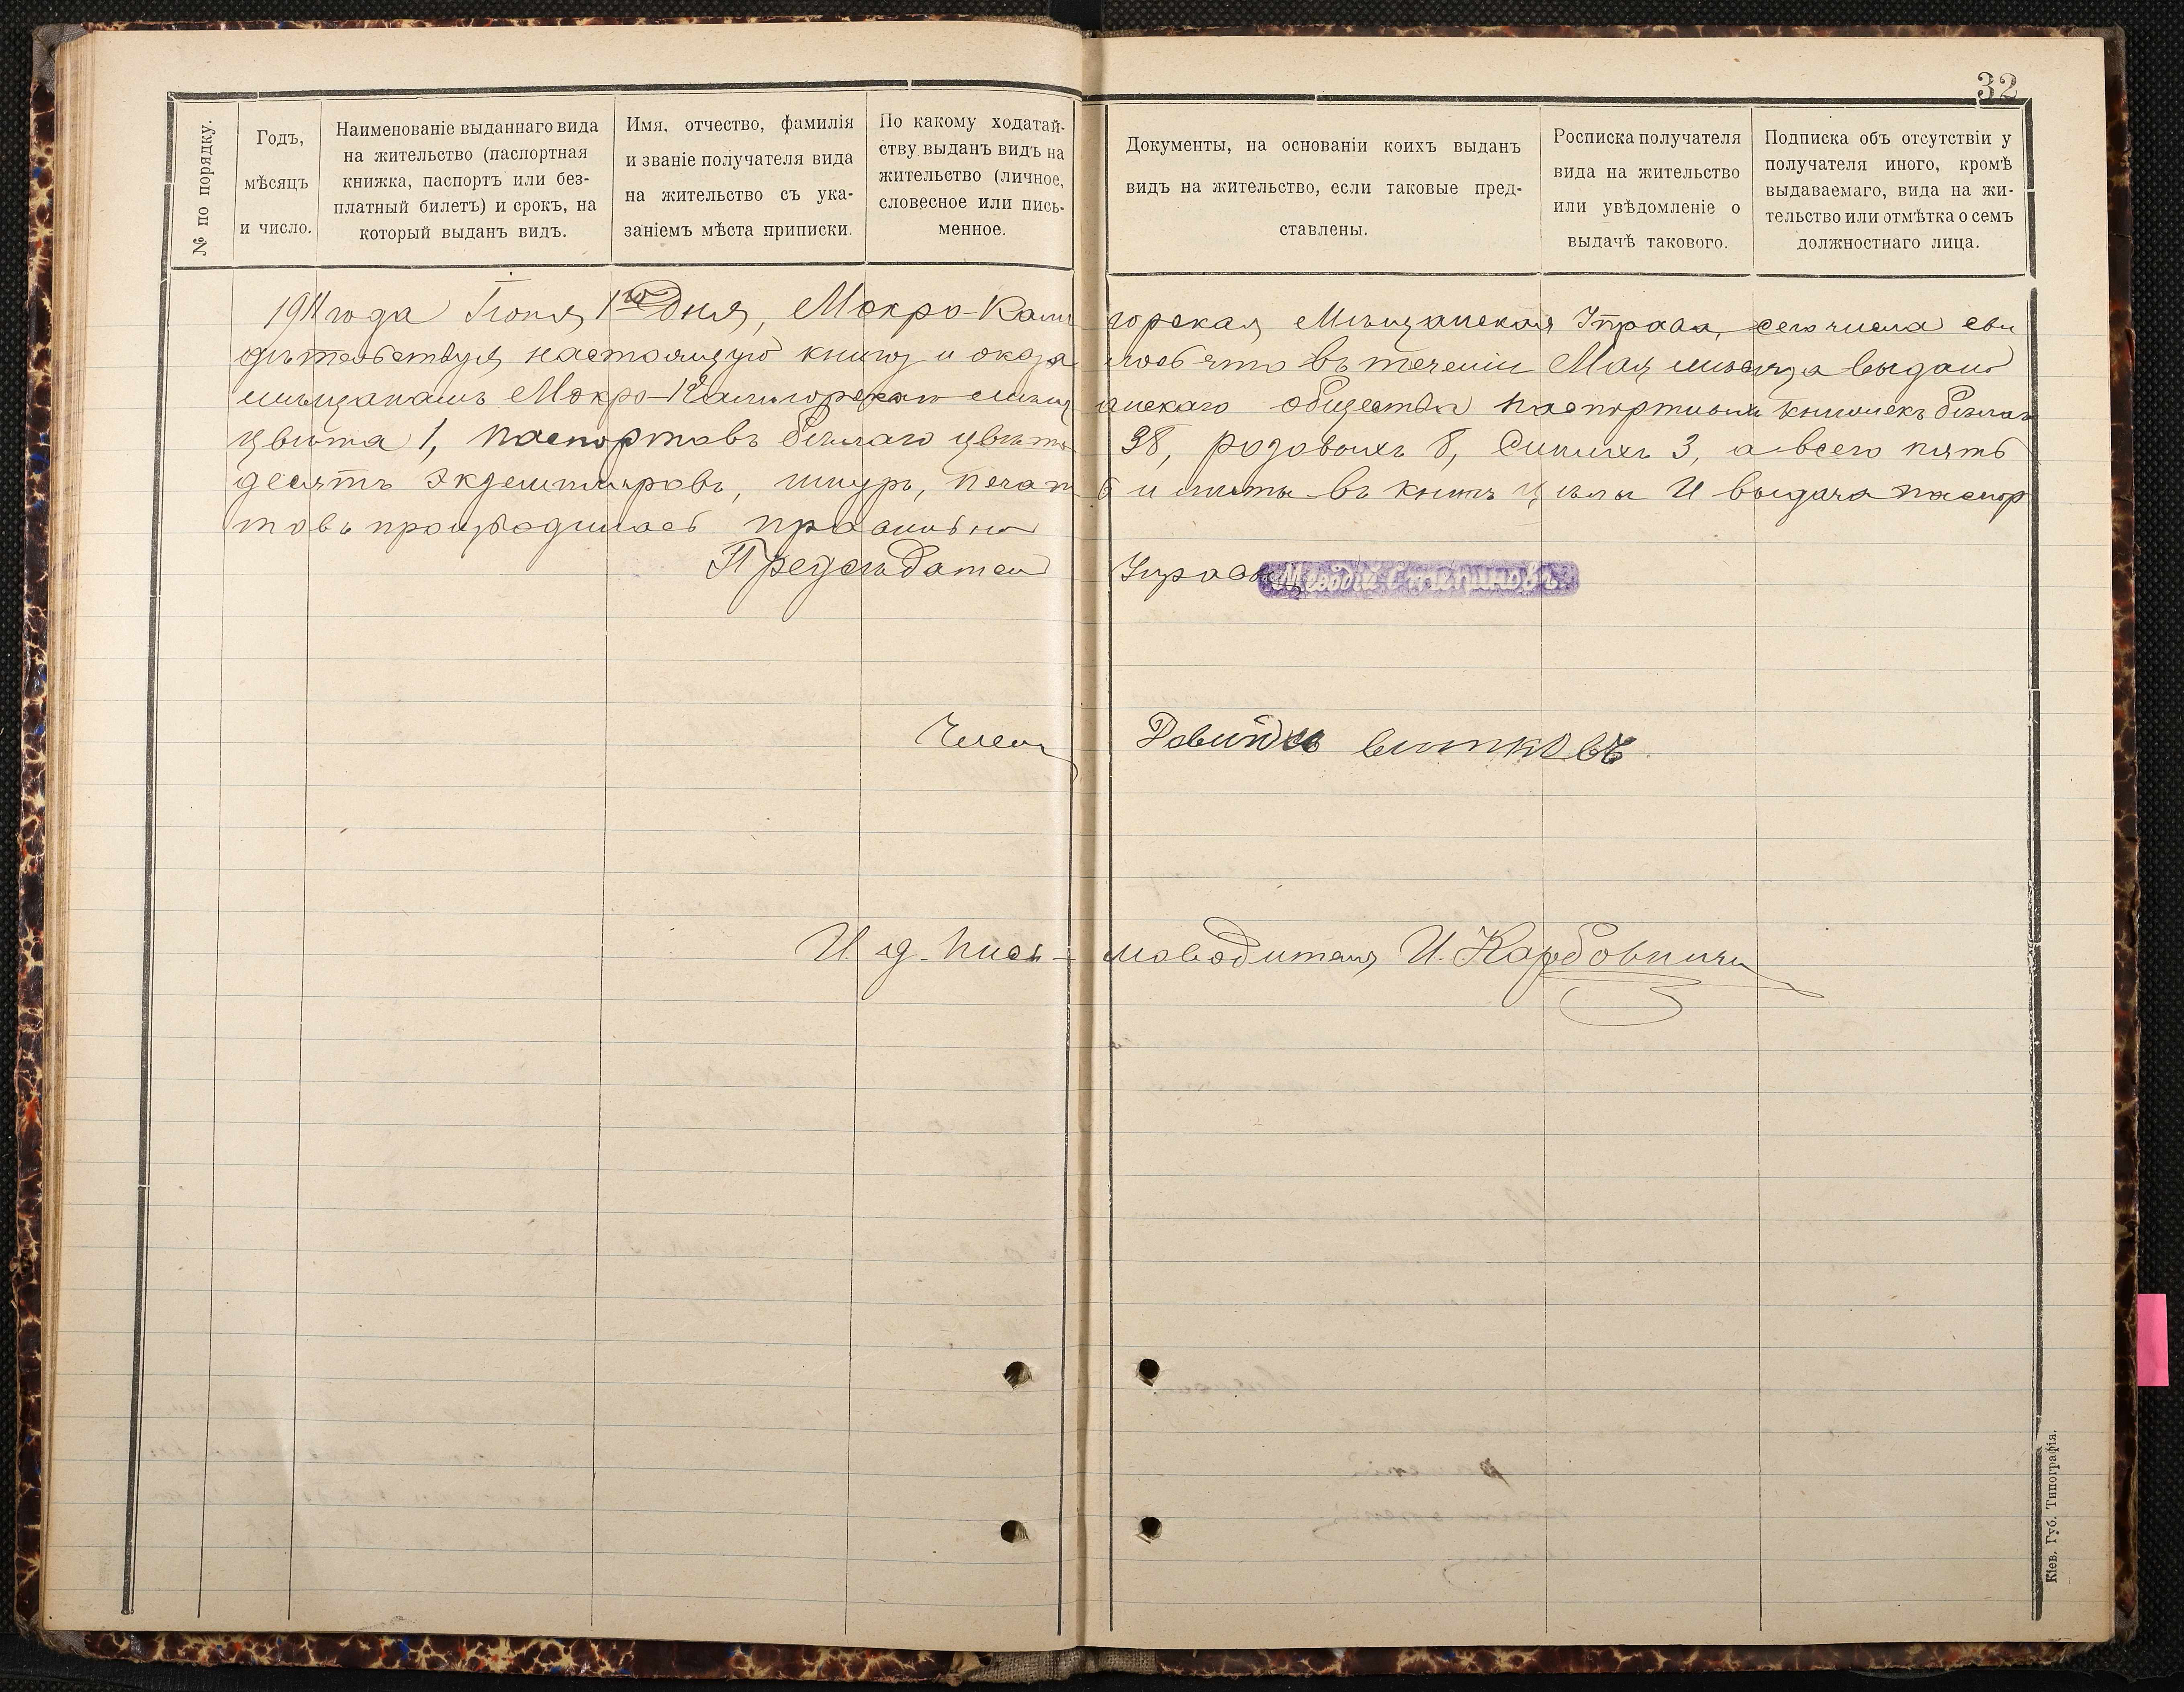 32
№ по порядку.
Годъ,
мѣсяцъ
и число.
Наименованіе выданнаго вида
на жительство (паспортная
книжка, паспортъ или без-
платный билетъ) и срокъ, на
который выданъ видъ.
Имя, отчество, фамилія
и званіе получателя вида
на жительство съ ука-
заніемъ мѣста приписки.
По какому ходатай-
ству выданъ видъ на
жительство (личное,
словесное или пись-
менное.
Документы, на основаніи коихъ выданъ
видъ на жительство, если таковые пред-
ставлены.
Росписка получателя
вида на жительство
или увѣдомленіе о
выдачѣ такового.
Подписка объ отсутствіи у
получателя иного, кромѣ
выдаваемаго, вида на жи-
тельство или отмѣтка о семъ
должностнаго лица.
1911 года Іюня 1го дня, Мокро-Калигорская Мѣщанская Управа, сего числа сви
дѣтельствуя настоящую книгу и оказалось что въ теченіи Мая мѣсяца выдано
мѣщанамъ Мокро-Калигорскаго мѣщанскаго общества паспортныхъ книжекъ бѣлаго
цвѣта 1, паспортовъ бѣлаго цвѣта 38, розовыхъ 8, синихъ 3, а всего пять
десятъ экземпляровъ, шнуръ, печать и листы въ книгѣ цѣлы и выдача паспор
товъ производилась правильно
Предсѣдатель Управы
Членъ
И. д. Письмоводителя И. Карбовничій
Кіев. Губ. Типографія.